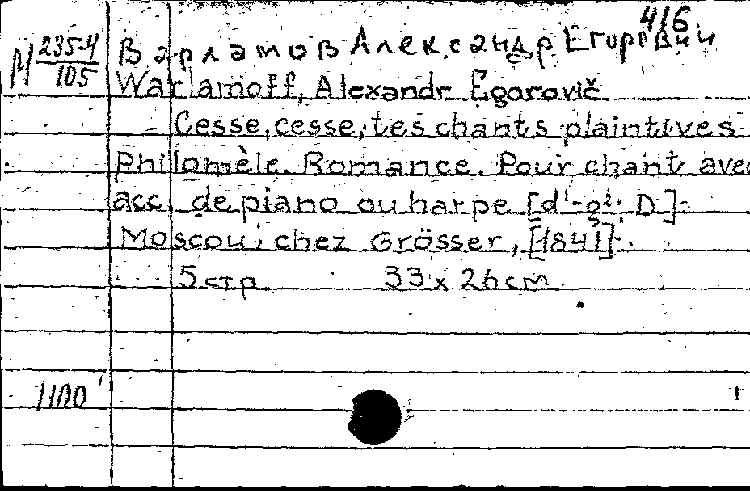 416
М 235-4/105 Варламов Александр Егорович
Warlamoff, Alexandr Egorovič
Cesse, cesse, tes chants plaintives
Philomèle. Romance. Pour chant avec
acc. de piano ou harpe [d¹-g²; D].
Moscou, chez Grösser, [1841].
5 стр 33 x 26 см
1100